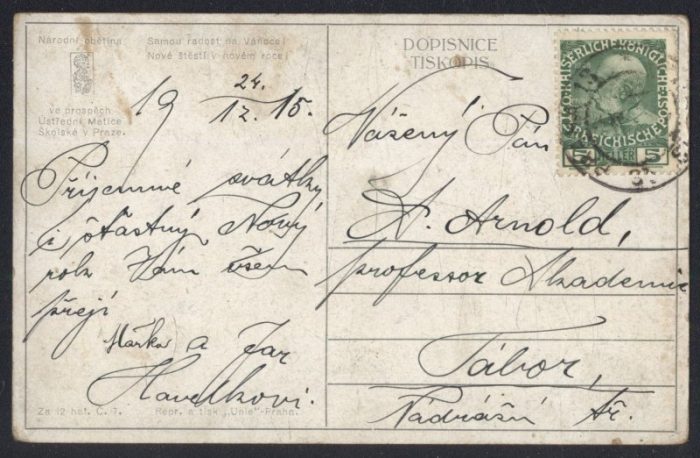 Národní obětina
Samou radost na Vánoce!
Nové štěstí v novém roce!
ve prospěch
Ústřední Matice
Školské v Praze.
19 24./12. 15.
Příjemné svátky
i šťastný Nový
rok Vám všem
přejí
a Jar
Havelkovi.
Za 12 hal. Č. 7.
Repr. a tisk „Unie"-Praha.
DOPISNICE
TISKOPIS
Vážený Pán
A. Arnold,
professor Akademie
Tábor,
Nádražní tř.
5